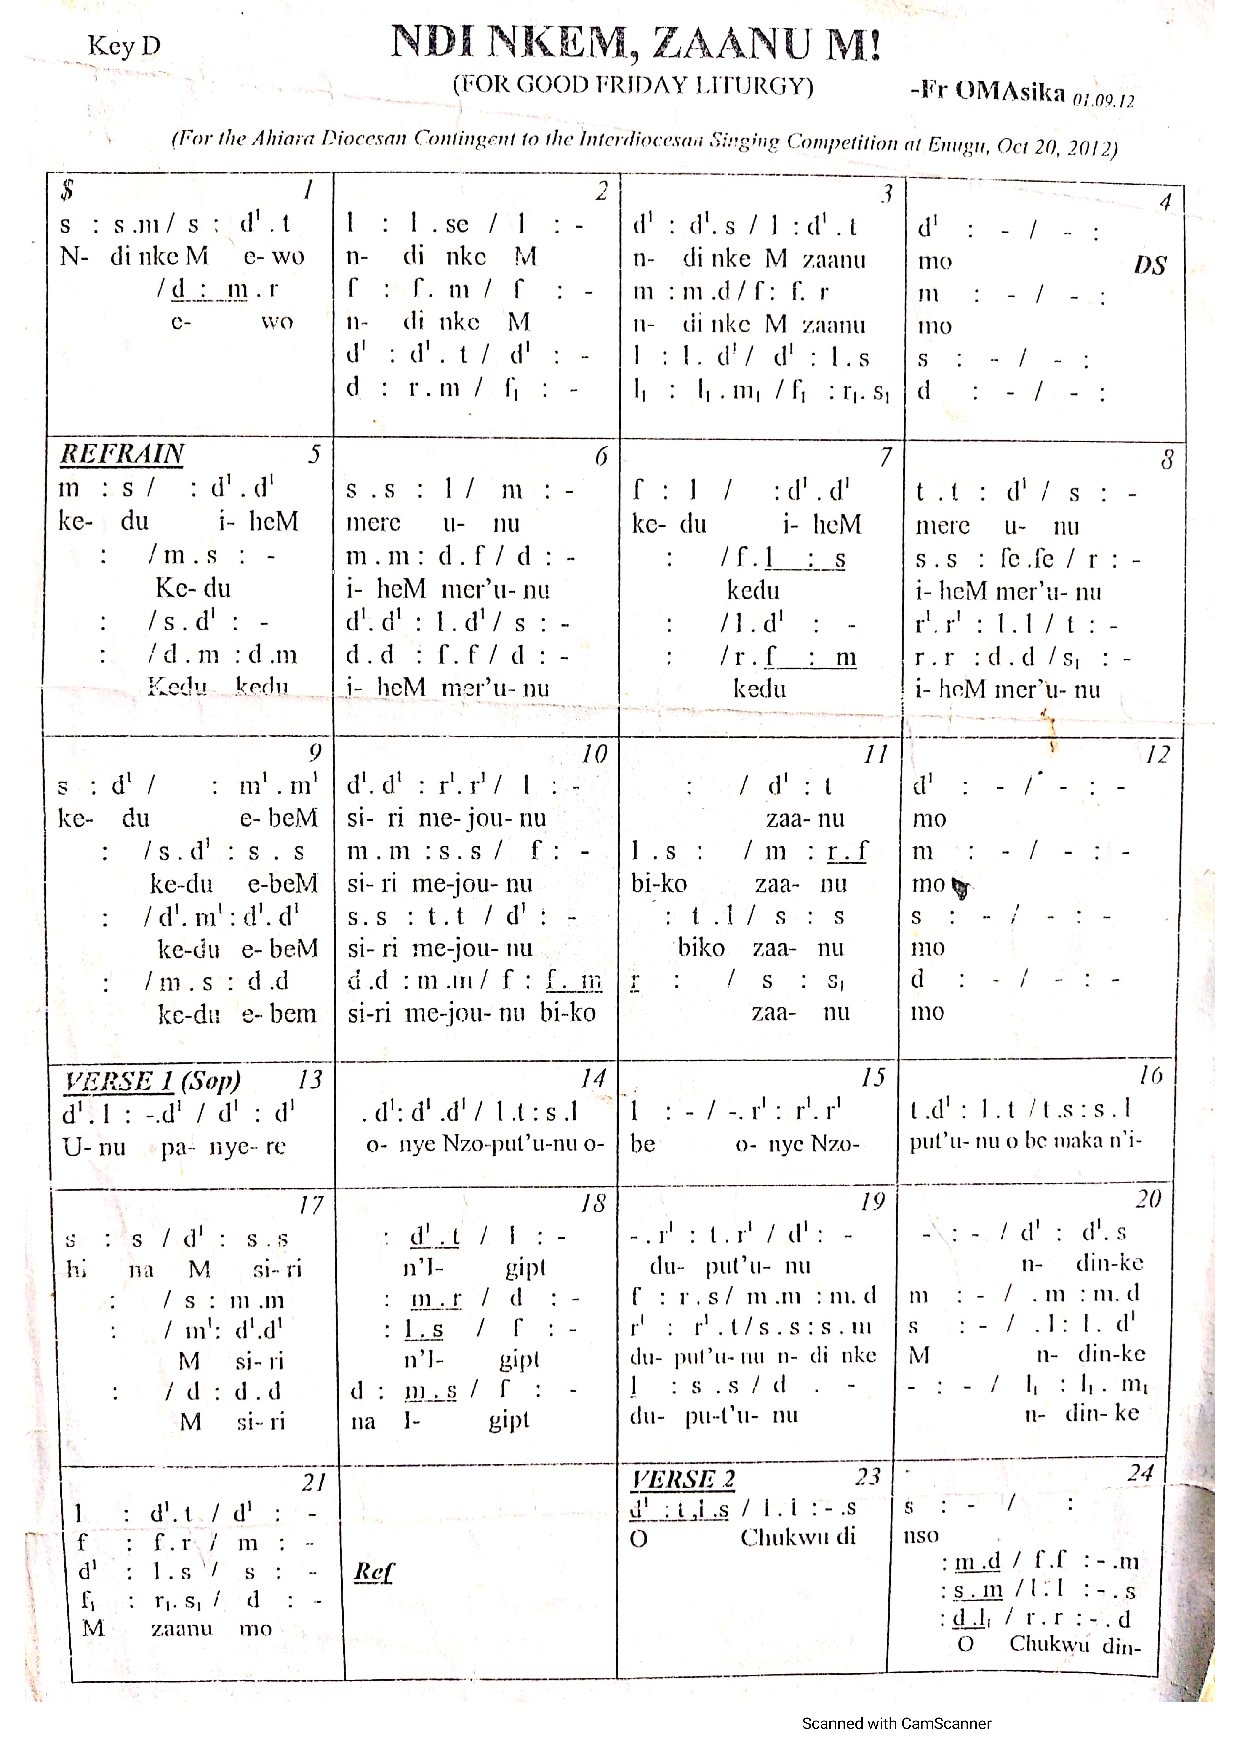 Key D
NDI NKEM, ZAANU M!
(FOR GOOD FRIDAY LITURGY)
-Fr OMAsika 01.09.12
(For the Ahiara Diocesan Contingent to the Interdiocesan Singing Competition at Enugu, Oct 20, 2012)
$ 1
s : s .m / s : d¹ . t
N- di nke M e- wo
/ d : m . r
e- wo
2
l : l . se / l : -
n- di nke M
f : f . m / f : -
n- di nke M
d¹ : d¹ . t / d¹ : -
d : r . m / f₁ : -
3
d¹ : d¹. s / l : d¹ . t
n- di nke M zaanu
m : m .d / f : f. r
n- di nke M zaanu
l : l . d¹ / d¹ : l . s
l₁ : l₁ . m₁ / f₁ : r₁. s₁
4
d¹ : - / - :
mo DS
m : - / - :
mo
s : - / - :
d : - / - :
REFRAIN 5
m : s / : d¹ . d¹
ke- du i- heM
: / m . s : -
Ke- du
: / s . d¹ : -
: / d . m : d .m
Kedu kedu
6
s . s : l / m : -
mere u- nu
m . m : d . f / d : -
i- heM mer'u- nu
d¹. d¹ : l . d¹ / s : -
d . d : f . f / d : -
i- heM mer'u- nu
7
f : l / : d¹ . d¹
ke- du i- heM
: / f . l : s
kedu
: / l . d¹ : -
: / r . f : m
kedu
8
t . t : d¹ / s : -
mere u- nu
s . s : fe .fe / r : -
i- heM mer'u- nu
r¹. r¹ : l . l / t : -
r . r : d . d / s₁ : -
i- heM mer'u- nu
9
s : d¹ / : m¹ . m¹
ke- du e- beM
: / s . d¹ : s . s
ke-du e-beM
: / d¹. m¹ : d¹. d¹
ke-du e- beM
: / m . s : d .d
ke-du e- bem
10
d¹. d¹ : r¹. r¹ / l : -
si- ri me-jou- nu
m . m : s . s / f : -
si- ri me-jou- nu
s . s : t . t / d¹ : -
si- ri me-jou- nu
d .d : m .m / f : f . m
si-ri me-jou- nu bi-ko
11
: / d¹ : t
zaa- nu
l . s : / m : r . f
bi-ko zaa- nu
: t . l / s : s
biko zaa- nu
r : / s : s₁
zaa- nu
12
d¹ : - / - : -
mo
m : - / - : -
mo
s : - / - : -
mo
d : - / - : -
mo
VERSE 1 (Sop) 13
d¹. l : -.d¹ / d¹ : d¹
U- nu pa- nye- re
14
. d¹: d¹ .d¹ / l .t : s .l
o- nye Nzo-put'u-nu o-
15
l : - / -. r¹ : r¹. r¹
be o- nye Nzo-
16
t .d¹ : l . t / t .s : s . l
put'u- nu o be maka n'i-
17
s : s / d¹ : s . s
hi na M si- ri
: / s : m .m
: / m¹: d¹.d¹
M si- ri
: / d : d . d
M si- ri
18
: d¹ . t / l : -
n'I- gipt
: m . r / d : -
: l . s / f : -
n'I- gipt
d : m . s / f : -
na I- gipt
19
- . r¹ : t . r¹ / d¹ : -
du- put'u- nu
f : r . s / m .m : m. d
r¹ : r¹ . t / s . s : s . m
du- put'u- nu n- di nke
l : s . s / d . -
du- pu-t'u- nu
20
- : - / d¹ : d¹. s
n- din-ke
m : - / . m : m. d
s : - / . l : l. d¹
M n- din-ke
- : - / l₁ : l₁ . m₁
n- din- ke
21
l : d¹. t / d¹ : -
f : f . r / m : -
d¹ : l . s / s : -
f₁ : r₁. s₁ / d : -
M zaanu mo
Ref
VERSE 2 23
d¹ : t ,l .s / l . l : - . s
O Chukwu di
24
s : - / :
nso
: m . d / f . f : - . m
: s . m / l . l : - . s
: d .l₁ / r . r : - . d
O Chukwu din-
Scanned with CamScanner